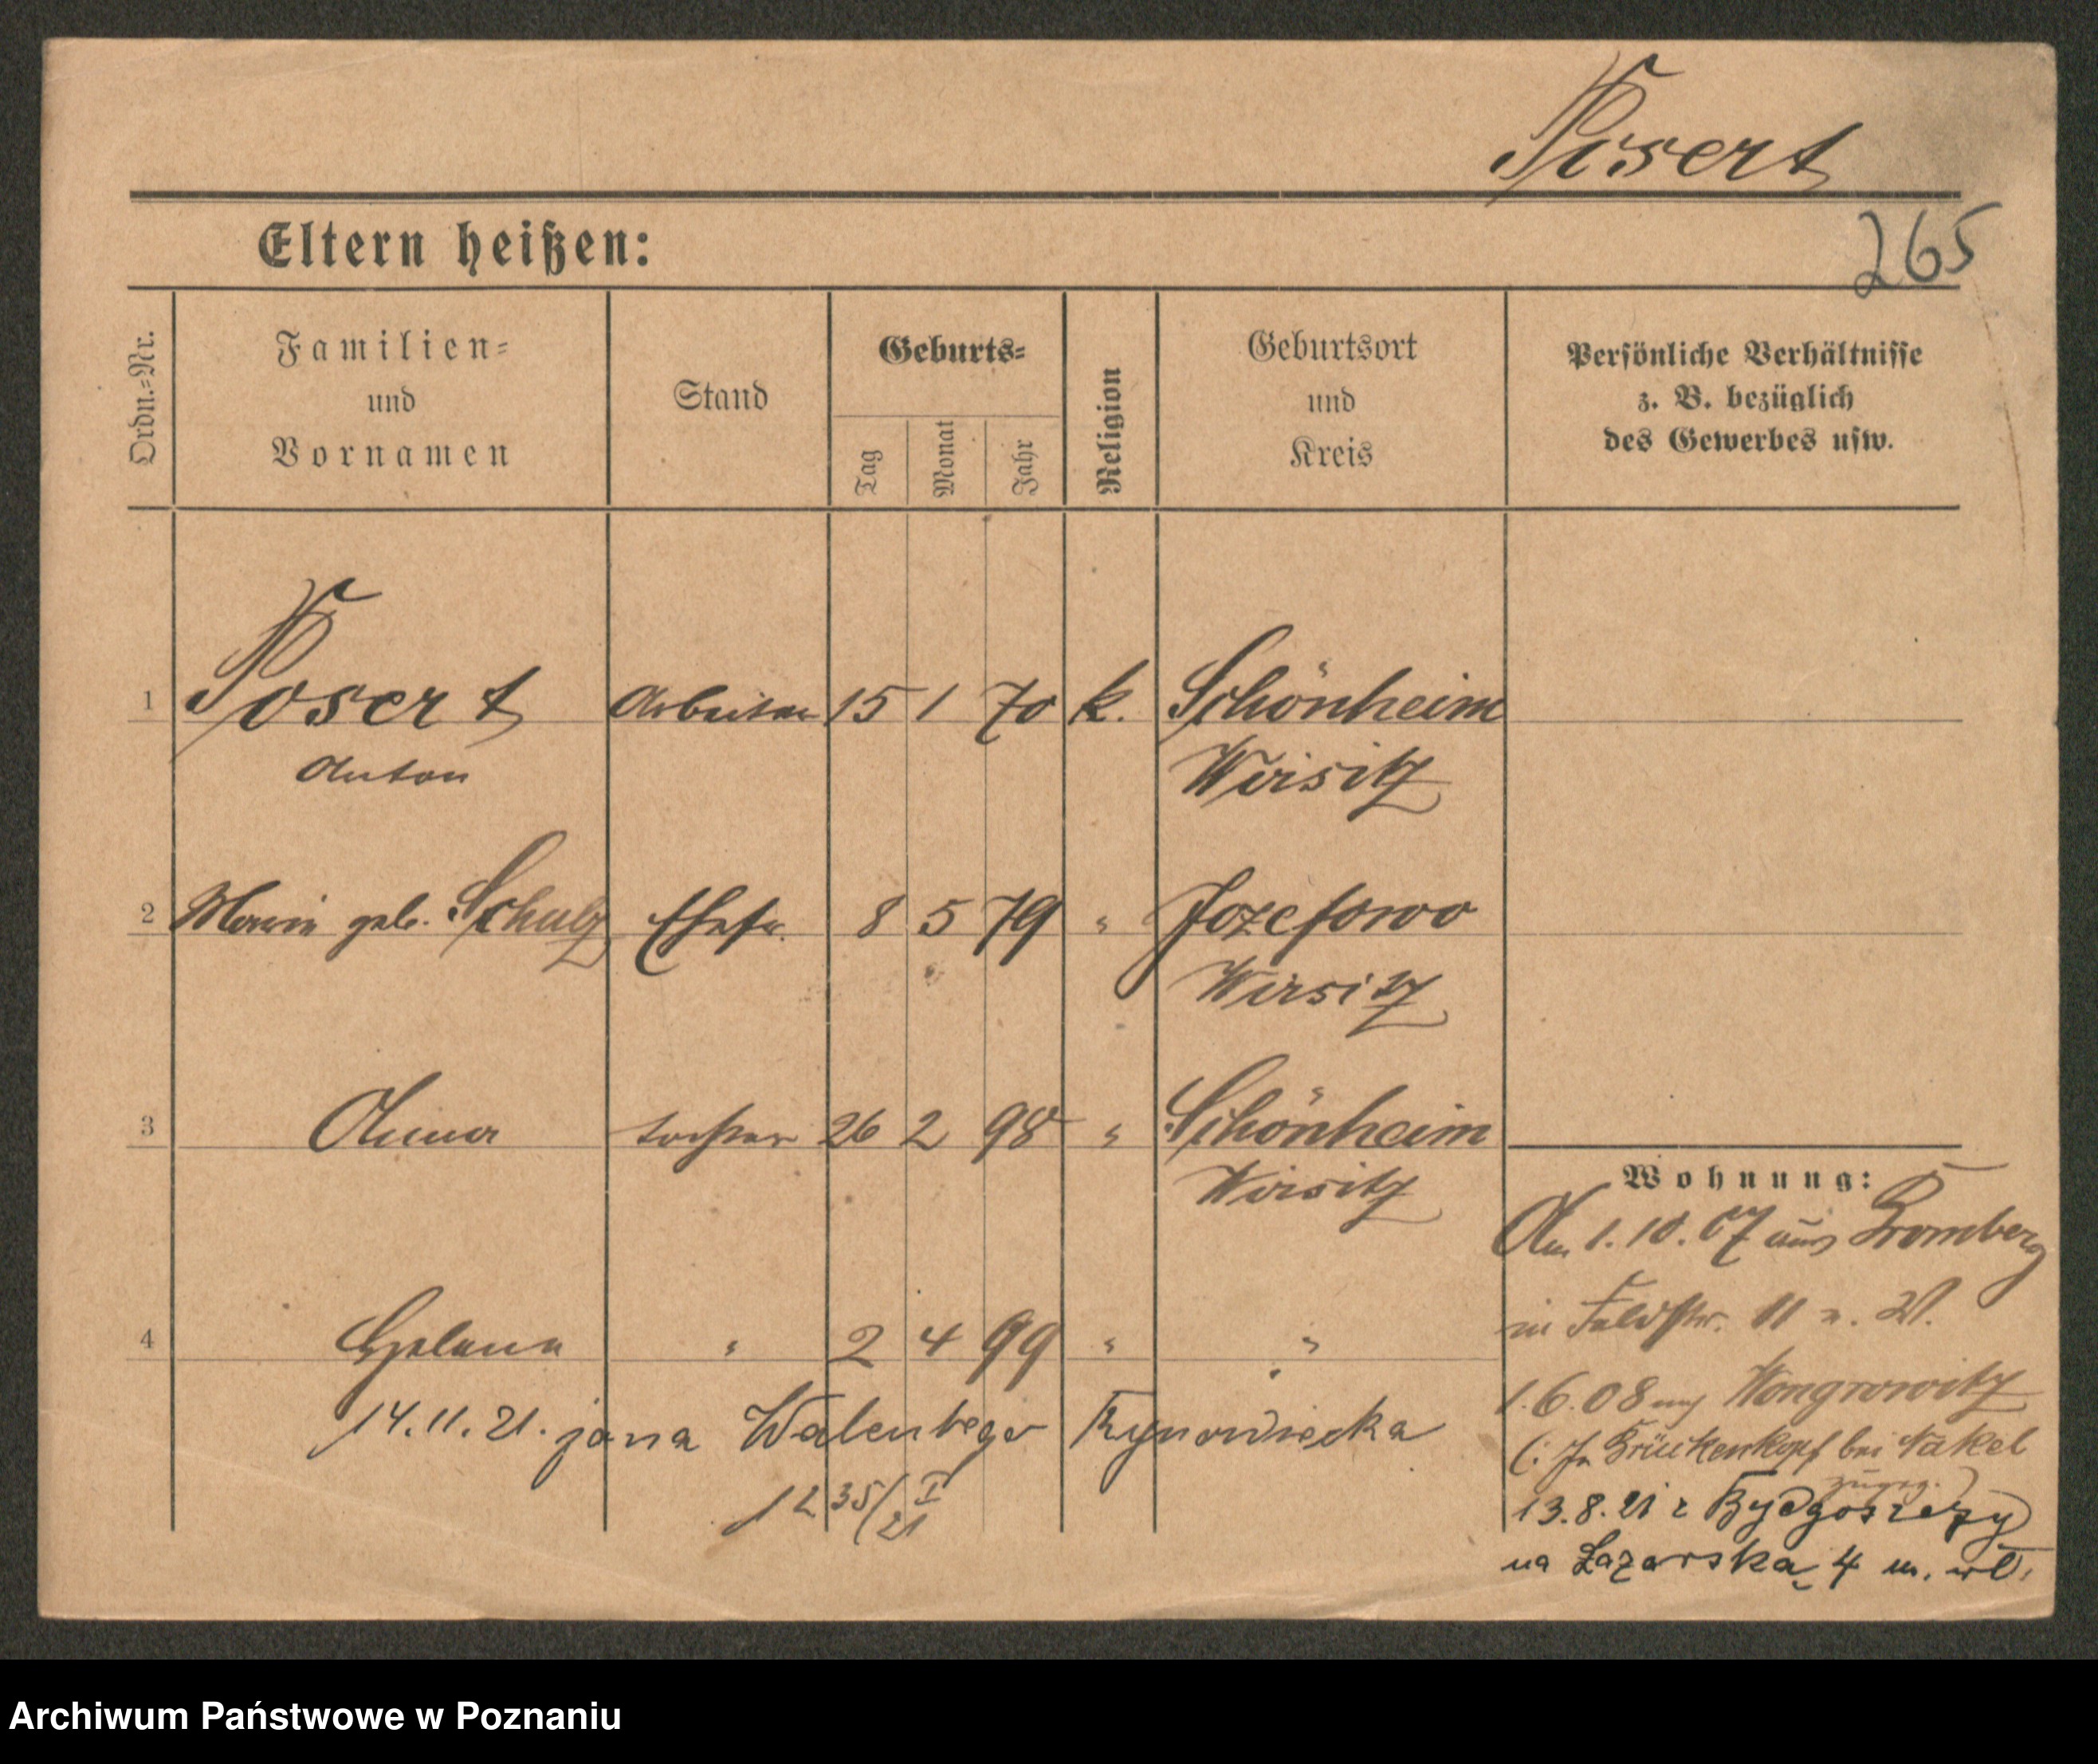 Posert
265
Eltern heißen:
Ordn.-Nr.
Familien-
und
Vornamen
Stand
Geburts-
Tag
Monat
Jahr
Religion
Geburtsort
und
Kreis
Persönliche Verhältnisse
z. B. bezüglich
des Gewerbes usw.
1 Posert Arbeiter 15 1 70 k. Schönheim
Anton Wirsitz
2 Maria geb. Schulz Ehefr. 8 5 79 " Jozefowo
Wirsitz
3 Anna Tochter 26 2 98 " Schönheim
Wirsitz
4 Helena " 2 4 99 " "
14.11.21. żona Walentego Rynowiecka
1235/21 I
Wohnung:
Am 1.10.07 aus Bromberg
in Feldstr. 11 b. W.
1.6.08 nach Wongrowitz
(: In Brückenkopf bei Nakel
zugez.)
13.8.21 z Bydgoszczy
na Łazarska 4 m. wł.
Archiwum Państwowe w Poznaniu